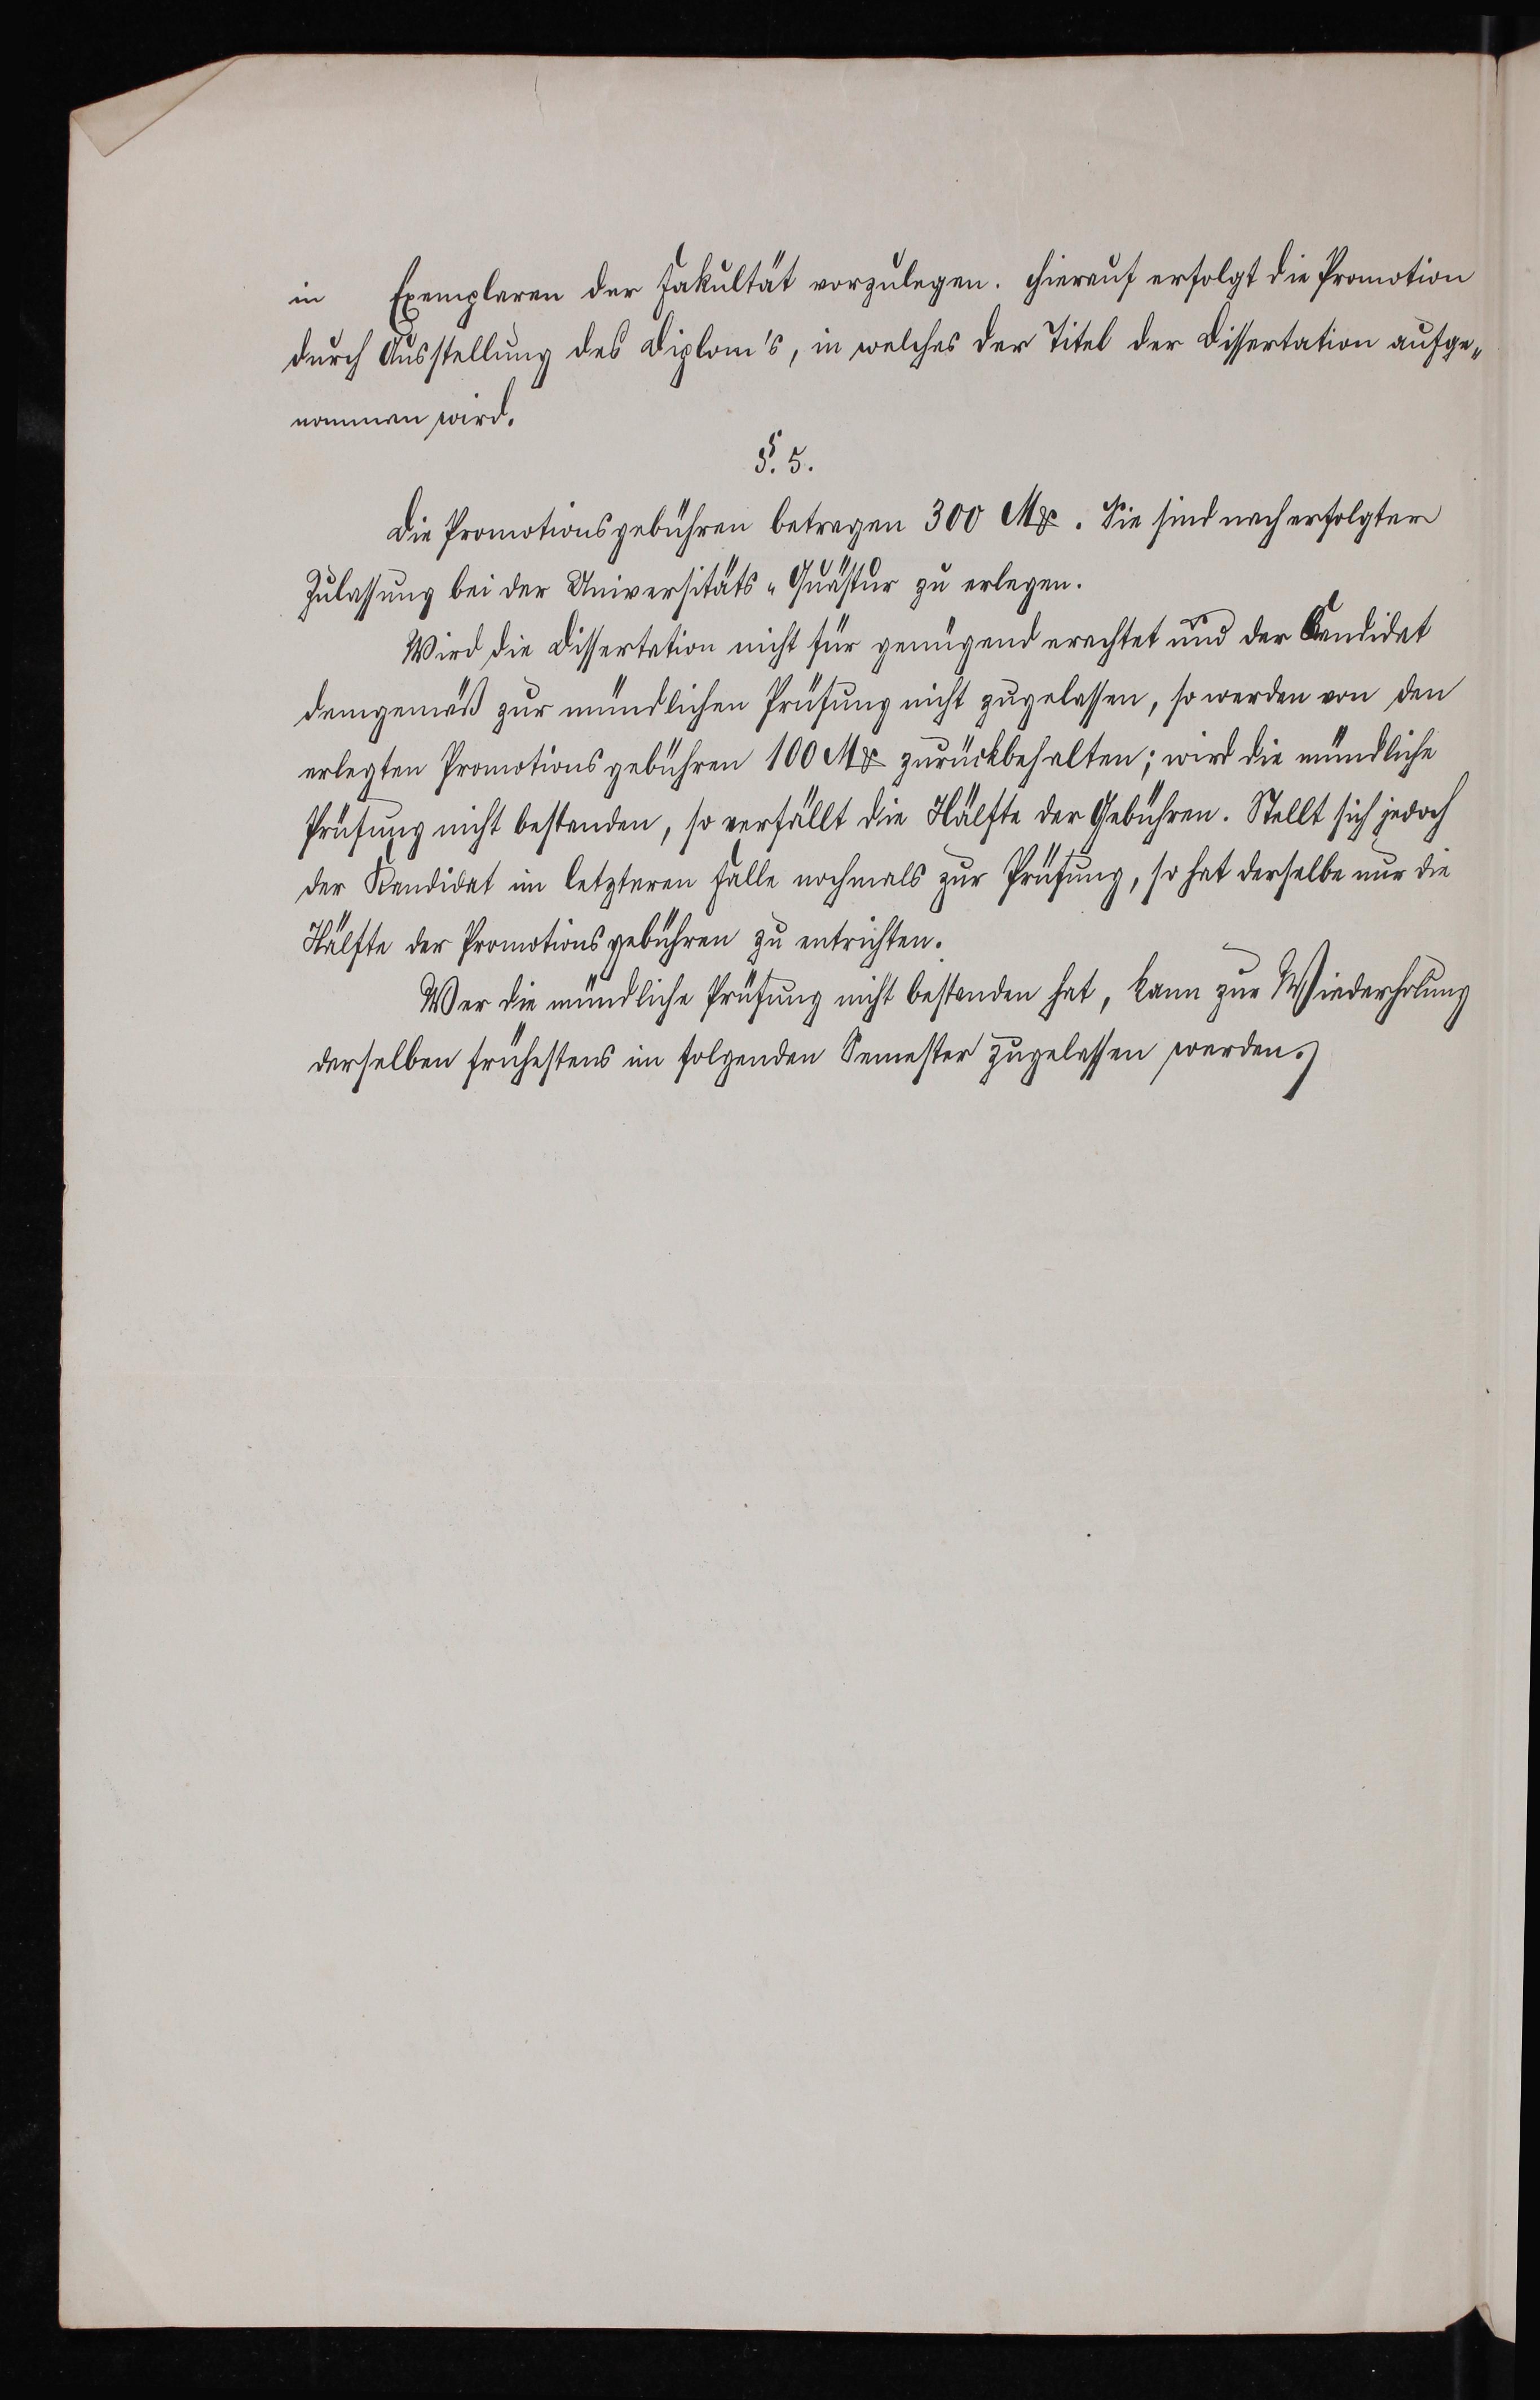 in Exemplaren der Fakultät vorzulegen. Hierauf erfolgt die Promotion
durch Ausstellung des Diplom's, in welches der Titel der Dissertation aufge„
nommen wird.
§. 5.
Die Promotionsgebühren betragen 300 Mk. Sie sind nach erfolgter
Zulassung bei der Universitäts-Quästur zu erlegen.
Wird die Dissertation nicht für genügend erachtet und der Kandidat
demgemäß zur mündlichen Prüfung nicht zugelassen, so werden von den
erlegten Promotionsgebühren 100 Mk zurückbehalten; wird die mündliche
Prüfung nicht bestanden, so verfällt die Hälfte der Gebühren. Stellt sich jedoch
der Kandidat im letzteren Falle nochmals zur Prüfung, so hat derselbe nur die
Hälfte der Promotionsgebühren zu entrichten.
Wer die mündliche Prüfung nicht bestanden hat, kann zur Wiederholung
derselben frühestens im folgenden Semester zugelassen werden.